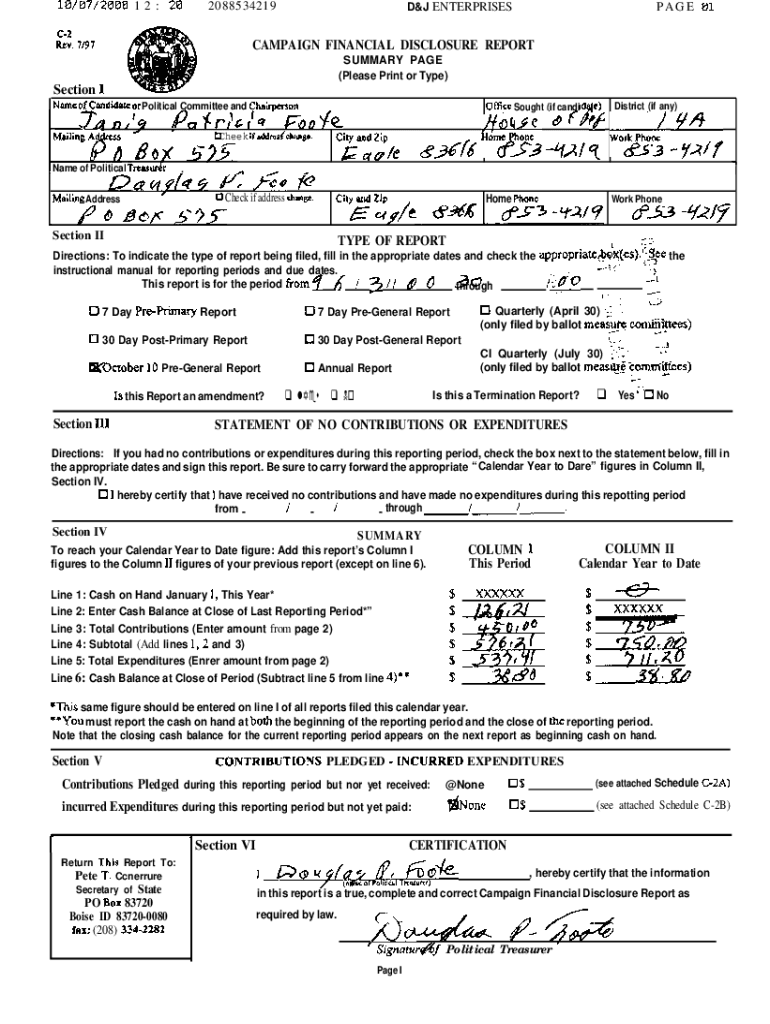 10/07/2000 12: 20 2088534219 D&J ENTERPRISES PAGE 01
C-2
Rev. 7/97
CAMPAIGN FINANCIAL DISCLOSURE REPORT
SUMMARY PAGE
(Please Print or Type)
Section I
Name of Candidate or Political Committee and Chairperson Office Sought (if candidate) District (if any)
Janis Patricia Foote House of Rep 14A
Mailing Address Check if address change. City and Zip Home Phone Work Phone
P O Box 575 Eagle 83616 853-4219 853-4219
Name of Political Treasurer
Douglas P. Foote
Mailing Address Check if address change. City and Zip Home Phone Work Phone
P O Box 575 Eagle 8366 853-4219 853-4219
Section II TYPE OF REPORT
Directions: To indicate the type of report being filed, fill in the appropriate dates and check the appropriate box(es). See the
instructional manual for reporting periods and due dates.
This report is for the period from through
7 Day Pre-Primary Report 7 Day Pre-General Report Quarterly (April 30)
(only filed by ballot measure committees)
30 Day Post-Primary Report 30 Day Post-General Report
CI Quarterly (July 30)
October 10 Pre-General Report Annual Report (only filed by ballot measure committees)
Is this Report an amendment? Is this a Termination Report? Yes No
Section III STATEMENT OF NO CONTRIBUTIONS OR EXPENDITURES
Directions: If you had no contributions or expenditures during this reporting period, check the box next to the statement below, fill in
the appropriate dates and sign this report. Be sure to carry forward the appropriate "Calendar Year to Dare" figures in Column II,
Section IV.
I hereby certify that I have received no contributions and have made no expenditures during this repotting period
from / / through / / .
Section IV SUMMARY
To reach your Calendar Year to Date figure: Add this report's Column I COLUMN I COLUMN II
figures to the Column II figures of your previous report (except on line 6). This Period Calendar Year to Date
Line 1: Cash on Hand January 1, This Year* $ XXXXXX $ 0
Line 2: Enter Cash Balance at Close of Last Reporting Period*" $ 126.21 $ XXXXXX
Line 3: Total Contributions (Enter amount from page 2) $ 450.00 $ 750
Line 4: Subtotal (Add lines 1, 2 and 3) $ 576.21 $ 750.00
Line 5: Total Expenditures (Enrer amount from page 2) $ 537.41 $ 711.20
Line 6: Cash Balance at Close of Period (Subtract line 5 from line 4)** $ 38.80 $ 38.80
*This same figure should be entered on line I of all reports filed this calendar year.
**You must report the cash on hand at both the beginning of the reporting period and the close of the reporting period.
Note that the closing cash balance for the current reporting period appears on the next report as beginning cash on hand.
Section V CONTRIBUTIONS PLEDGED - INCURRED EXPENDITURES
Contributions Pledged during this reporting period but nor yet received: @None $ (see attached Schedule C-2A)
incurred Expenditures during this reporting period but not yet paid: None $ (see attached Schedule C-2B)
Section VI CERTIFICATION
Return This Report To:
Pete T. Ccnerrure
Secretary of State
PO Box 83720
Boise ID 83720-0080
fax: (208) 334-2282
I Douglas P. Foote , hereby certify that the information
(name of Political Treasurer)
in this report is a true, complete and correct Campaign Financial Disclosure Report as
required by law.
Douglas P. Foote
Signature of Political Treasurer
Page I